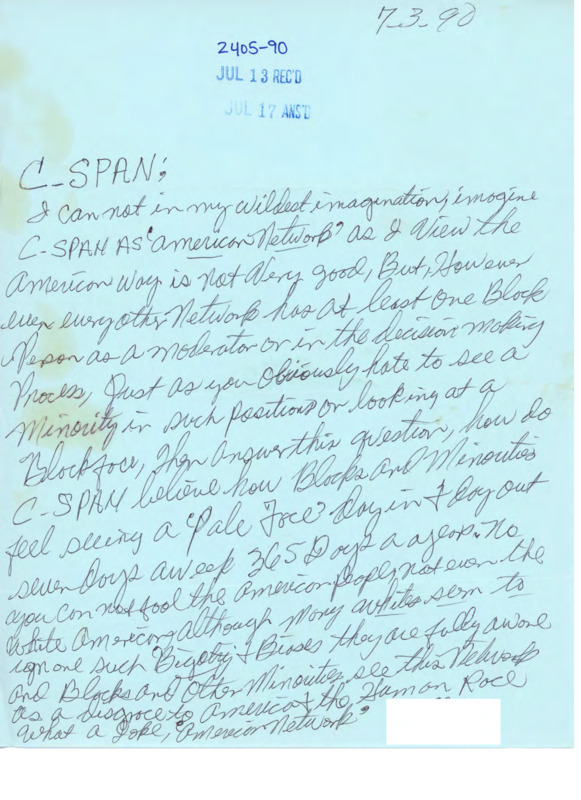 7-3-90
2405-90
JUL 13 REC'D
JUL 17 ANS'D
C-SPAN;
I can not in my wildest imagination, imagine
C-SPAN AS "american Network" as I View the
American way is not Very good, But, However
even every other Network has at least one Black
Person as a moderator or in the decision making
Process, Just as you obviously hate to see a
Minority in such positions or looking at a
Black face, then answer this question, how do
C-SPAN believe how Blacks and Minorities
feel seeing a "Pale Face" Day in & day out
seven Days a week 365 Days a year. No
you can not fool the American people, not even the
white American, although Many whites seem to
ignore such Bigotry & Biases they are fully aware
and Blacks and Other Minorities see this Network
as a disgrace to America & the Human Race
What a Joke, "American Network"